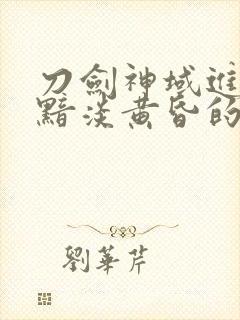 刀劍神域進
黯淡黃昏的
劉華芹